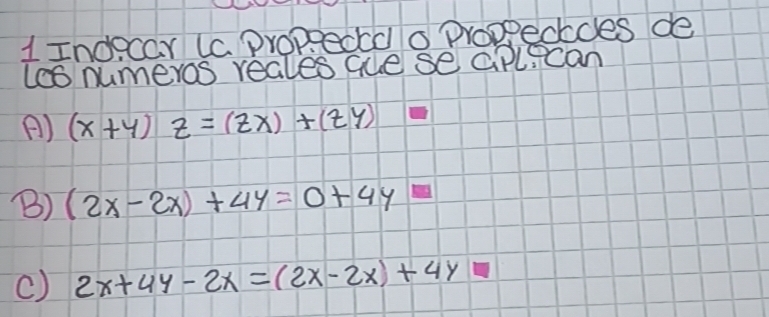 1 Indicar la Propiedad o Propiedades de
los numeros reales que se aplican
A) (x+y) z = (zx) + (zy)
B) (2x-2x) + 4y = 0 + 4y
C) 2x+4y-2x = (2x-2x) + 4y